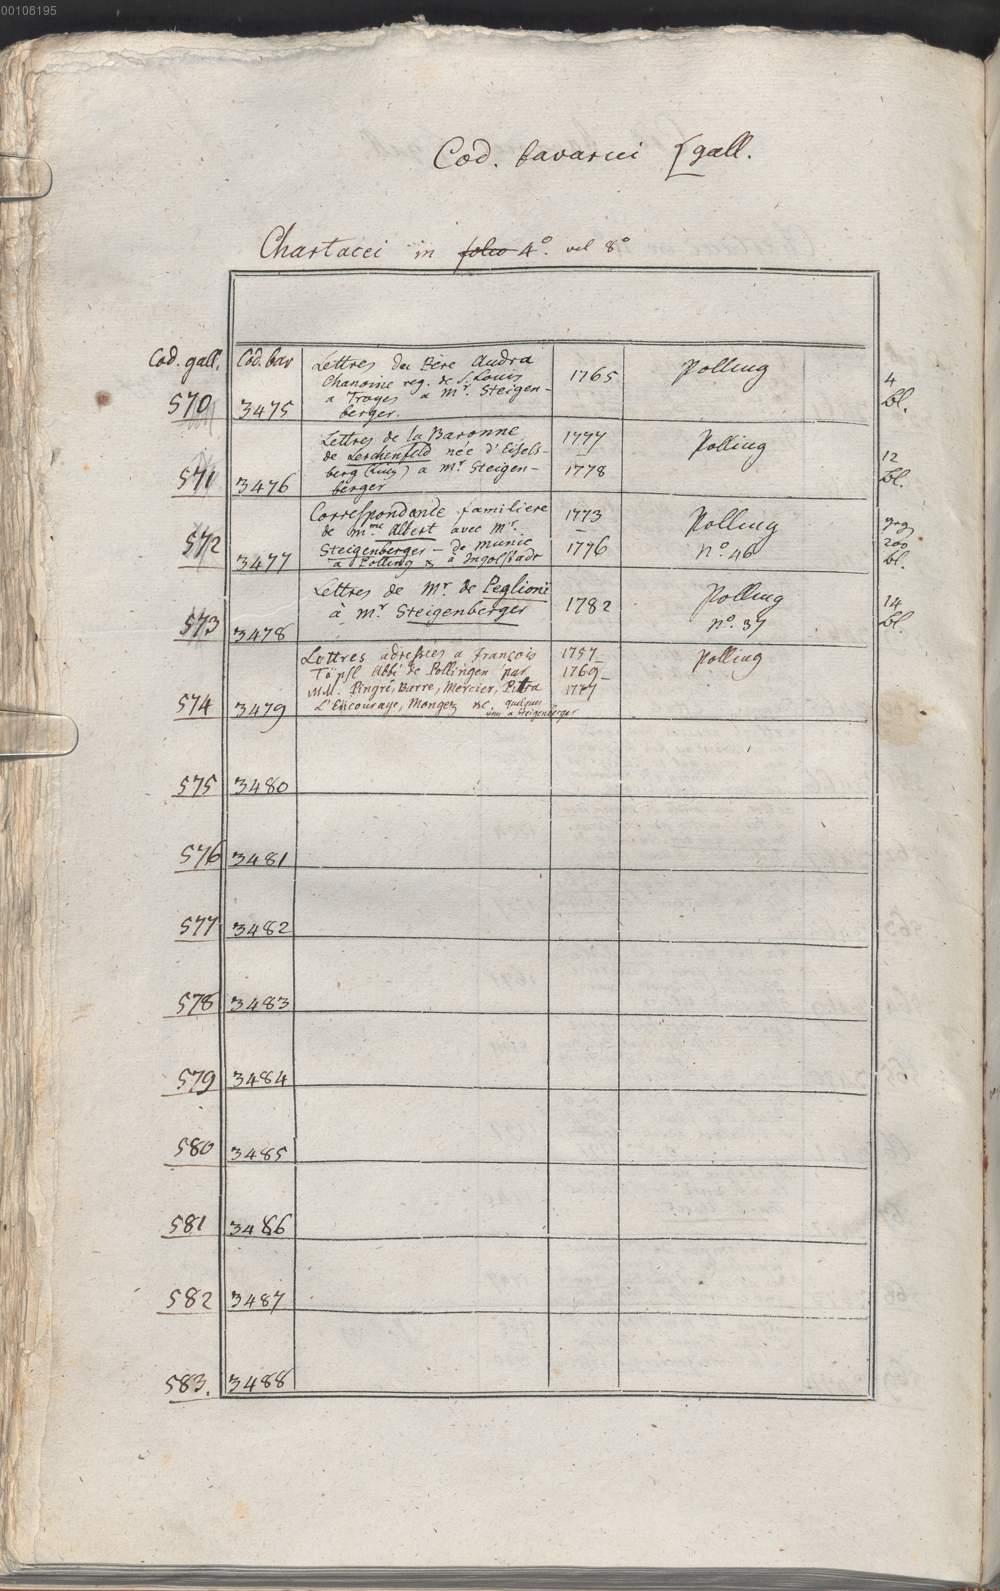 00108195
Cod. bavarici [gall.
Chartacei in folio 4°. vel 8°
Cod. gall. Cod. bav
570 3475
Lettres du Père Audra
Chanoine reg. de S. Louis
a Troyes a Mr. Steigen-
berger.
1765
Polling
4
bl.
571 3476
Lettres de la Baronne
de Lerchenfeld née d'Eisels-
berg a Mr Steigen-
berger
1777
1778
Polling
12
bl.
572 3477
Correspondance familiere
de Mme Albert avec Mr.
Steigenberger — de Munic
a Polling & a Ingolstadt
1773
–
1776
Polling
N°. 46
200
bl.
573 3478
Lettres de Mr. de Peglioni
à Mr Steigenberger
1782
Polling
N°. 37
14
bl.
574 3479
Lettres adressées a François
Töpsl Abbé de Pollingen par
MM. Pingré, Barre, Mercier,
L'Encouraye, Mongez &c. quelques
unes a Steigenberger
1757–
1769–
1777
Polling
575 3480
576 3481
577 3482
578 3483
579 3484
580 3485
581 3486
582 3487
583. 3488